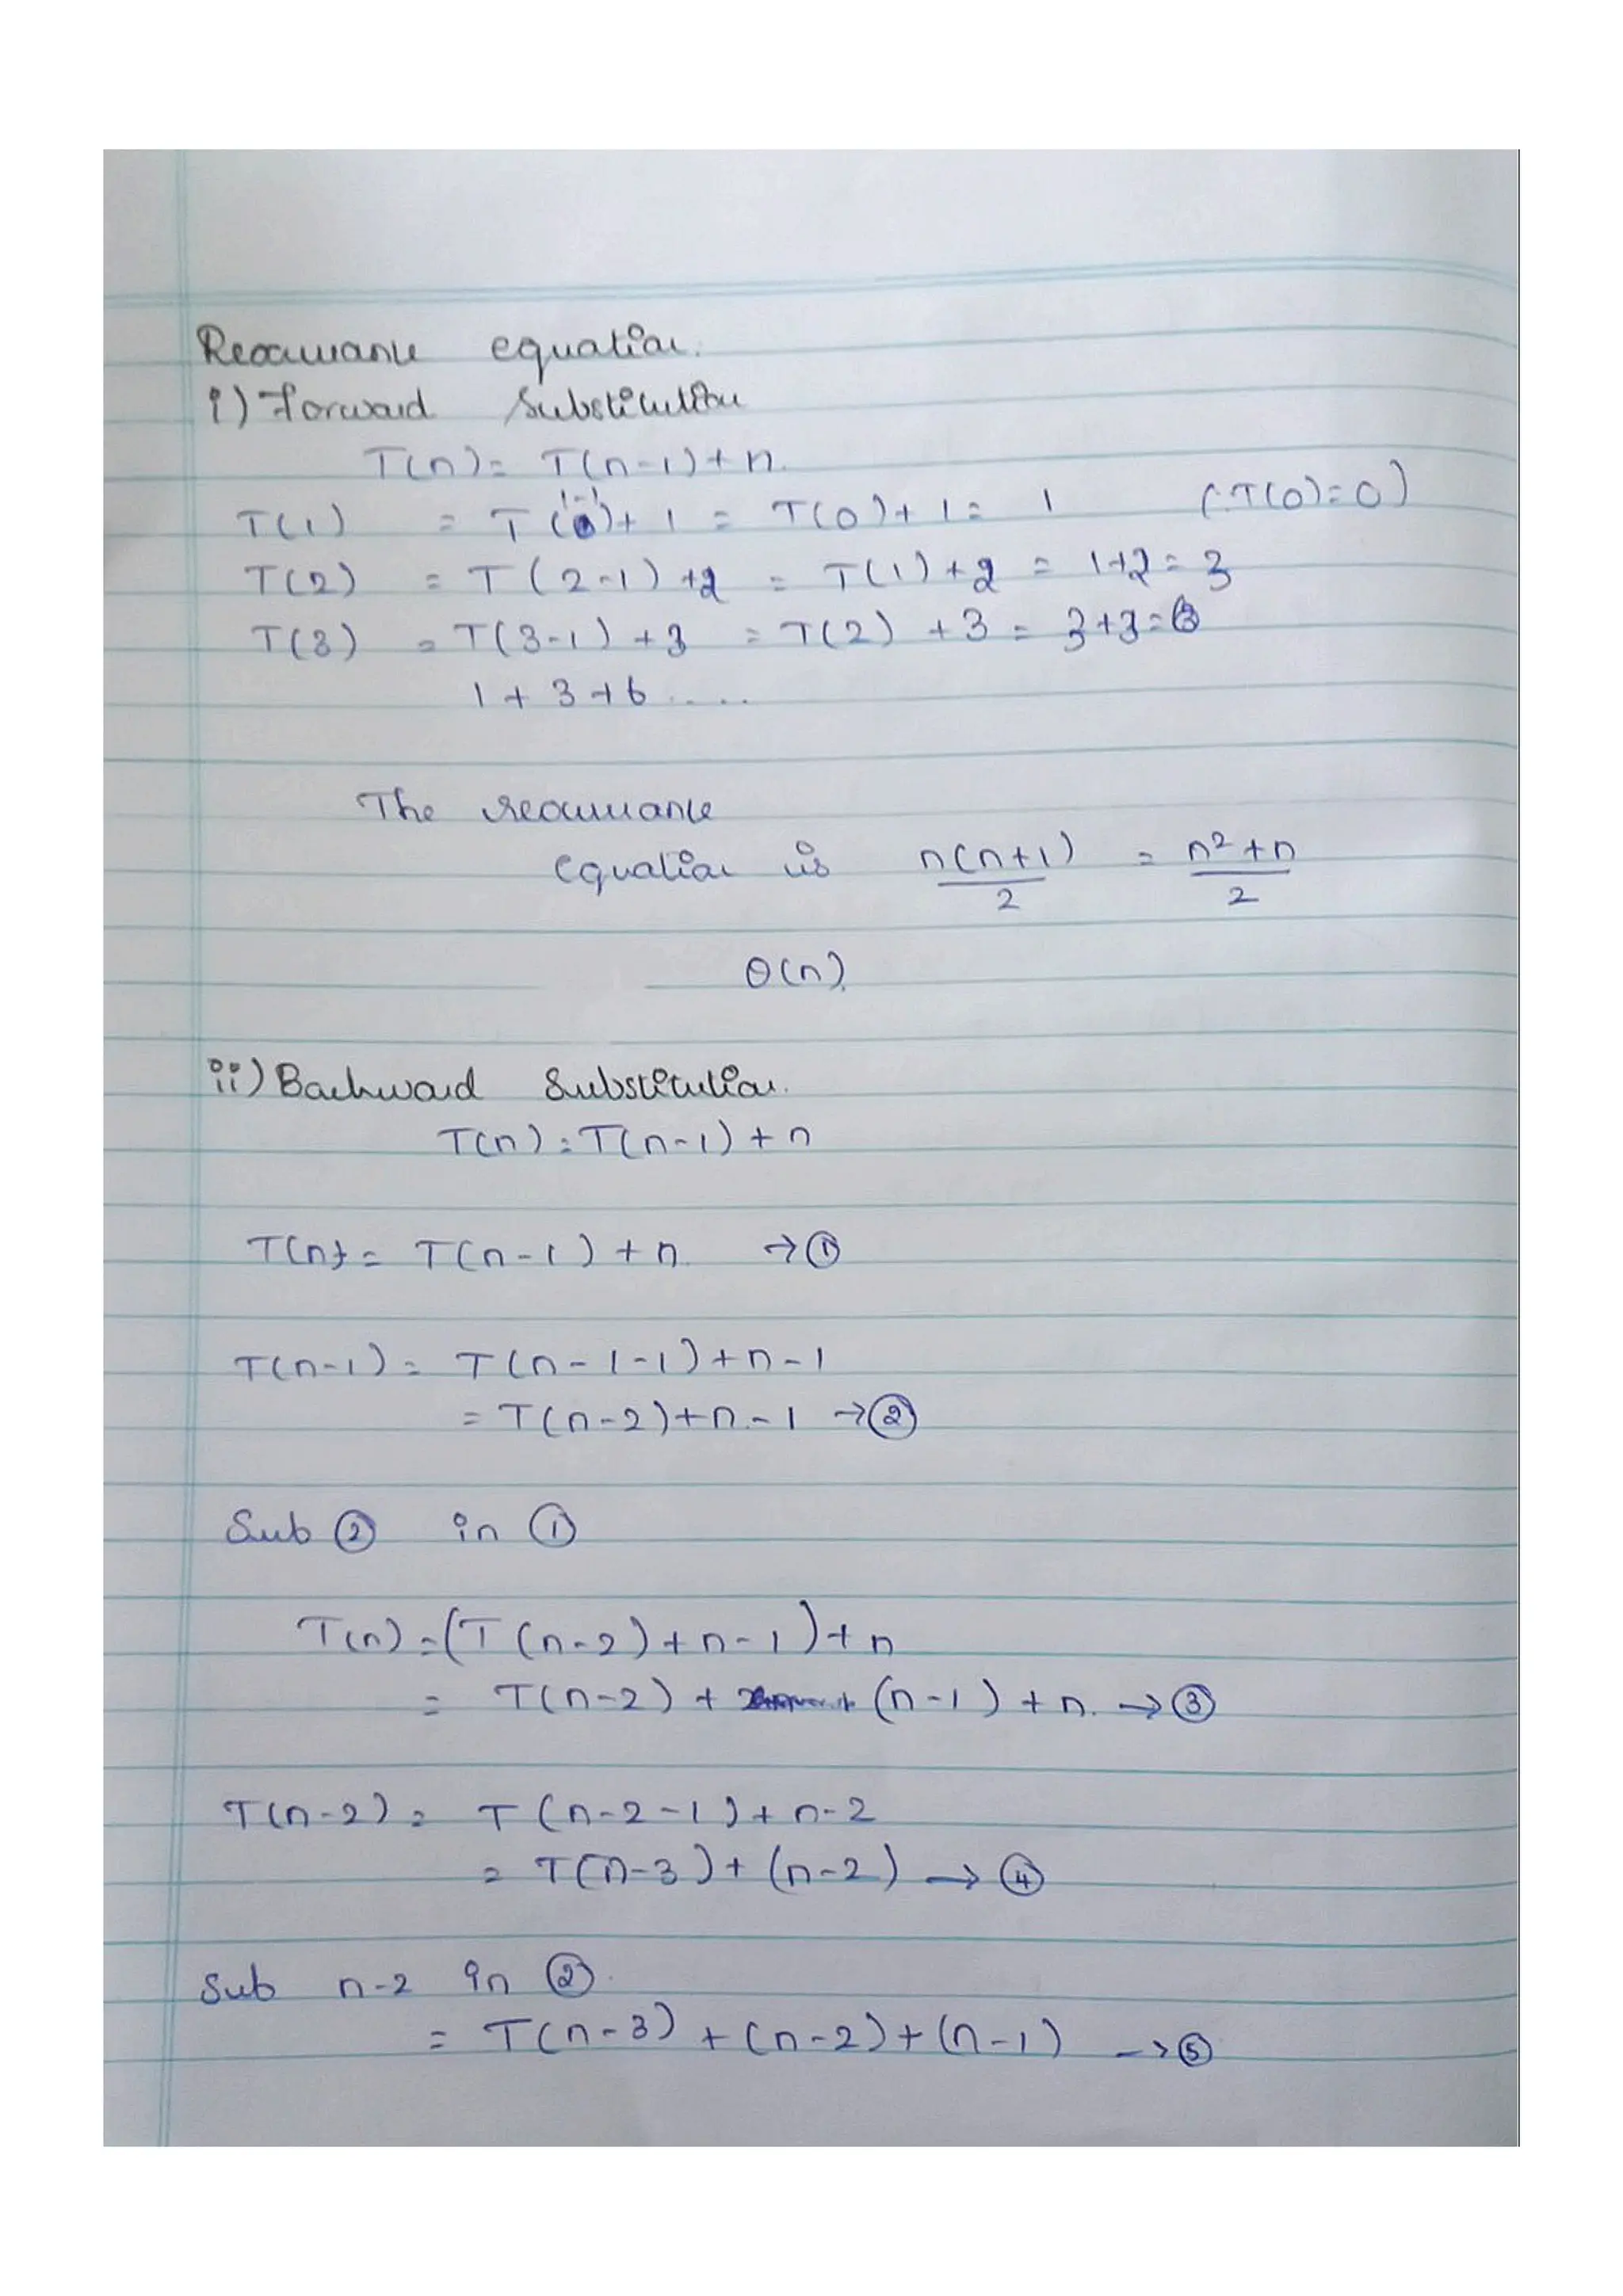 Recurrance equation.
i) Forward Substitution
T(n) = T(n-1) + n.
T(1) = T(1-1) + 1 = T(0) + 1 = 1 (∵T(0)=0)
T(2) = T(2-1) + 2 = T(1) + 2 = 1+2 = 3
T(3) = T(3-1) + 3 = T(2) + 3 = 3+3 = 6
1 + 3 + 6 .....
The recurrance
equation is n(n+1)/2 = n²+n/2
θ(n).
ii) Backward Substitution.
T(n) = T(n-1) + n
T(n) = T(n-1) + n. → ①
T(n-1) = T(n-1-1) + n-1
= T(n-2) + n-1 → ②
Sub ② in ①
T(n) = (T(n-2) + n-1) + n
= T(n-2) + (n-1) + n. → ③
T(n-2) = T(n-2-1) + n-2
= T(n-3) + (n-2) → ④
Sub n-2 in ②.
= T(n-3) + (n-2) + (n-1) → ⑤